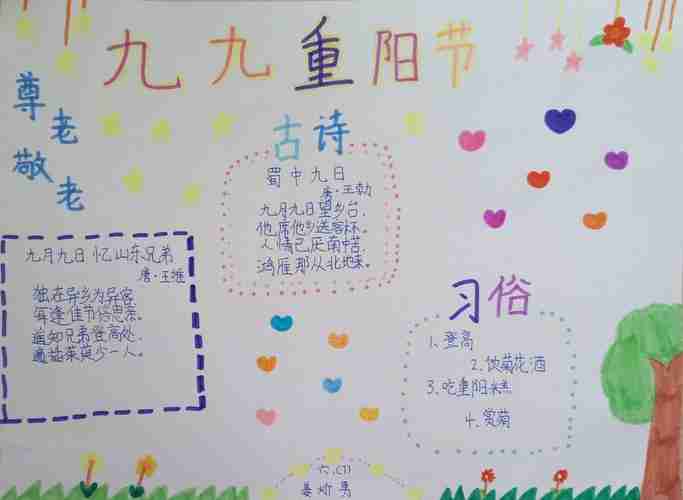 九九重阳节
尊老
敬老
古诗
蜀中九日
唐·王勃
九月九日望乡台，
他席他乡送客杯。
人情已厌南中苦，
鸿雁那从北地来。
九月九日忆山东兄弟
唐·王维
独在异乡为异客，
每逢佳节倍思亲。
遥知兄弟登高处，
遍插茱萸少一人。
习俗
1.登高
2.饮菊花酒
3.吃重阳糕
4.赏菊
六.(1)
姜